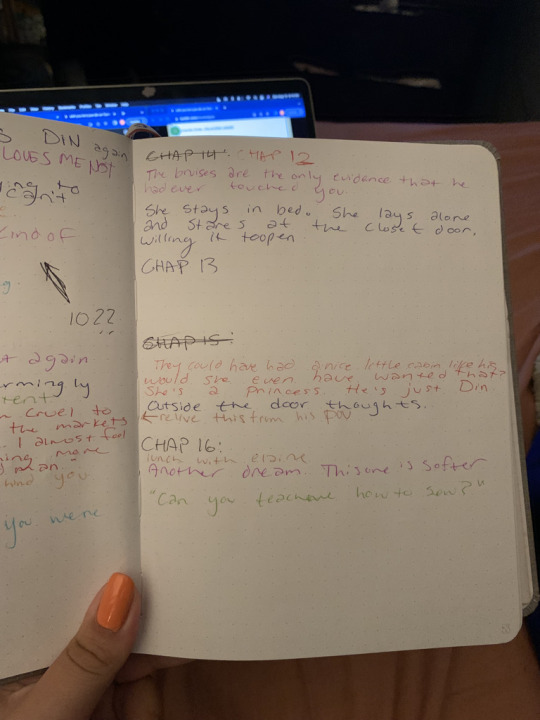 S DIN again
LOVES ME NOT
to
can't
kind of
1022
again
armingly
tent
cruel to
the markets
. I almost feel
g more
man.
hind you
you were
CHAP 14: CHAP 12
The bruises are the only evidence that he
had ever touched you.
She stays in bed. She lays alone
and stares at the closet door.
willing it to open
CHAP 13
CHAP 15:
They could have had a nice little cabin like his
would she even have wanted that?
She's a princess. He's just Din.
Outside the door thoughts.
relive this from his POV
CHAP 16:
lunch with Elaine
Another dream. This one is softer
"Can you teach me how to sew?"